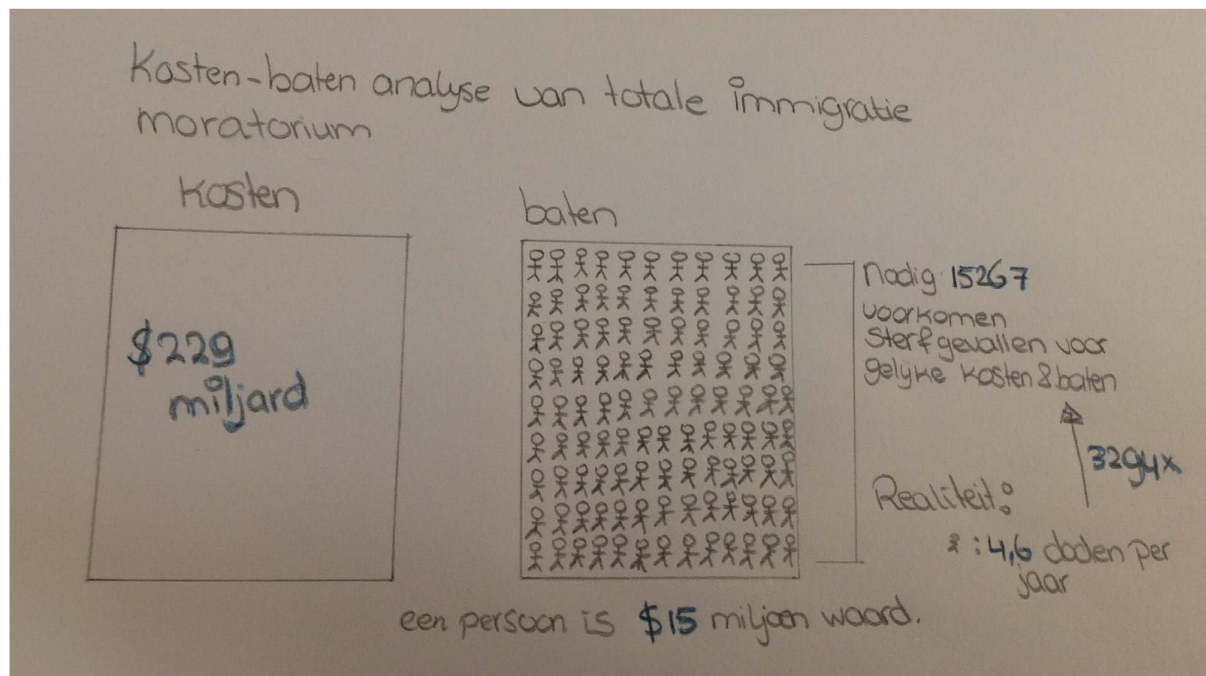 Kosten-baten analyse van totale immigratie
moratorium
kosten
baten
$229
miljard
nodig 15267
voorkomen
sterfgevallen voor
gelijke kosten & baten
3294x
Realiteit:
: 4,6 doden per
jaar
een persoon is $15 miljoen waard.